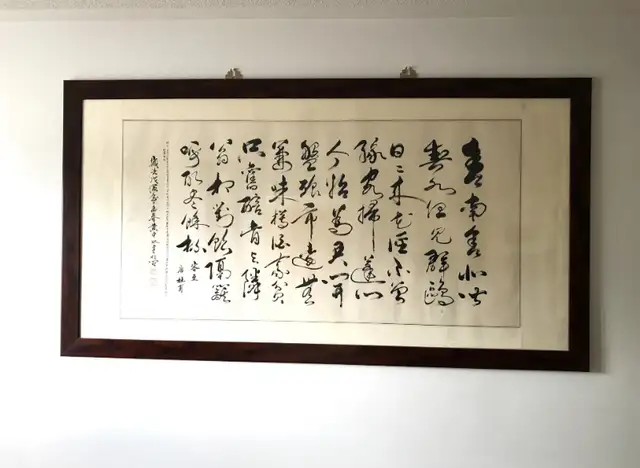 舍南舍北皆
春水但見群鷗
日日來花徑不曾
緣客掃蓬門
今始為君開
盤飱市遠無
兼味樽酒家貧
只舊醅肯与隣
翁相對飲隔籬
呼取盡餘杯
客至
唐杜甫
歲次戊